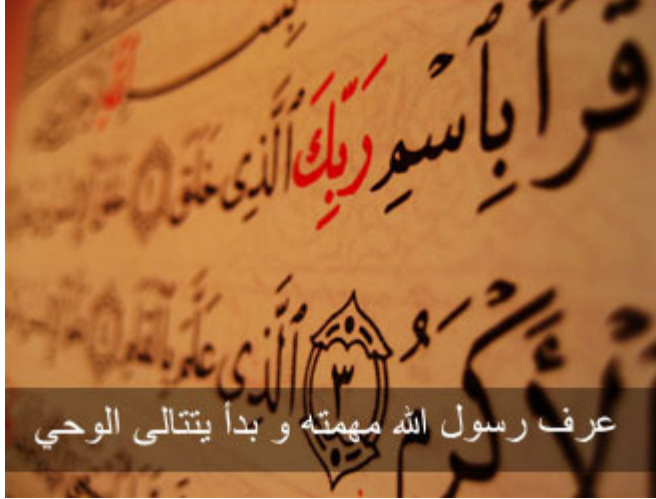 بسم
قرأ بٱسم ربك ٱلذى خلق ١
ٱلأكرم ٣ ٱلذى علم بٱلقلم
عرف رسول الله مهمته و بدأ يتتالى الوحي